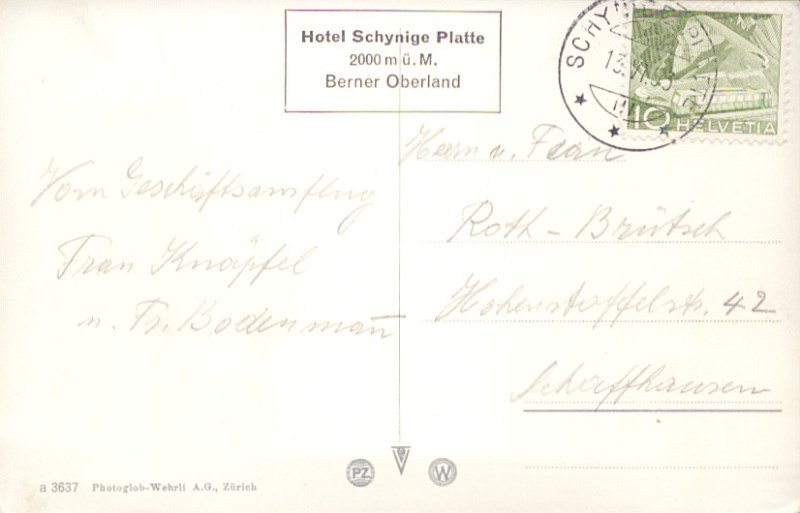 Hotel Schynige Platte
2000 m ü. M.
Berner Oberland
SCHYNIGE PLATTE
13.
10 HELVETIA
Vom Geschäftsausflug
Frau Knäpfel
u. Fr. Bodenmann
Herrn u. Frau
Roth - Brütsch
Hohenstoffelstr. 42
Schaffhausen
a 3637 Photoglob-Wehrli A.G., Zürich
PZ
W